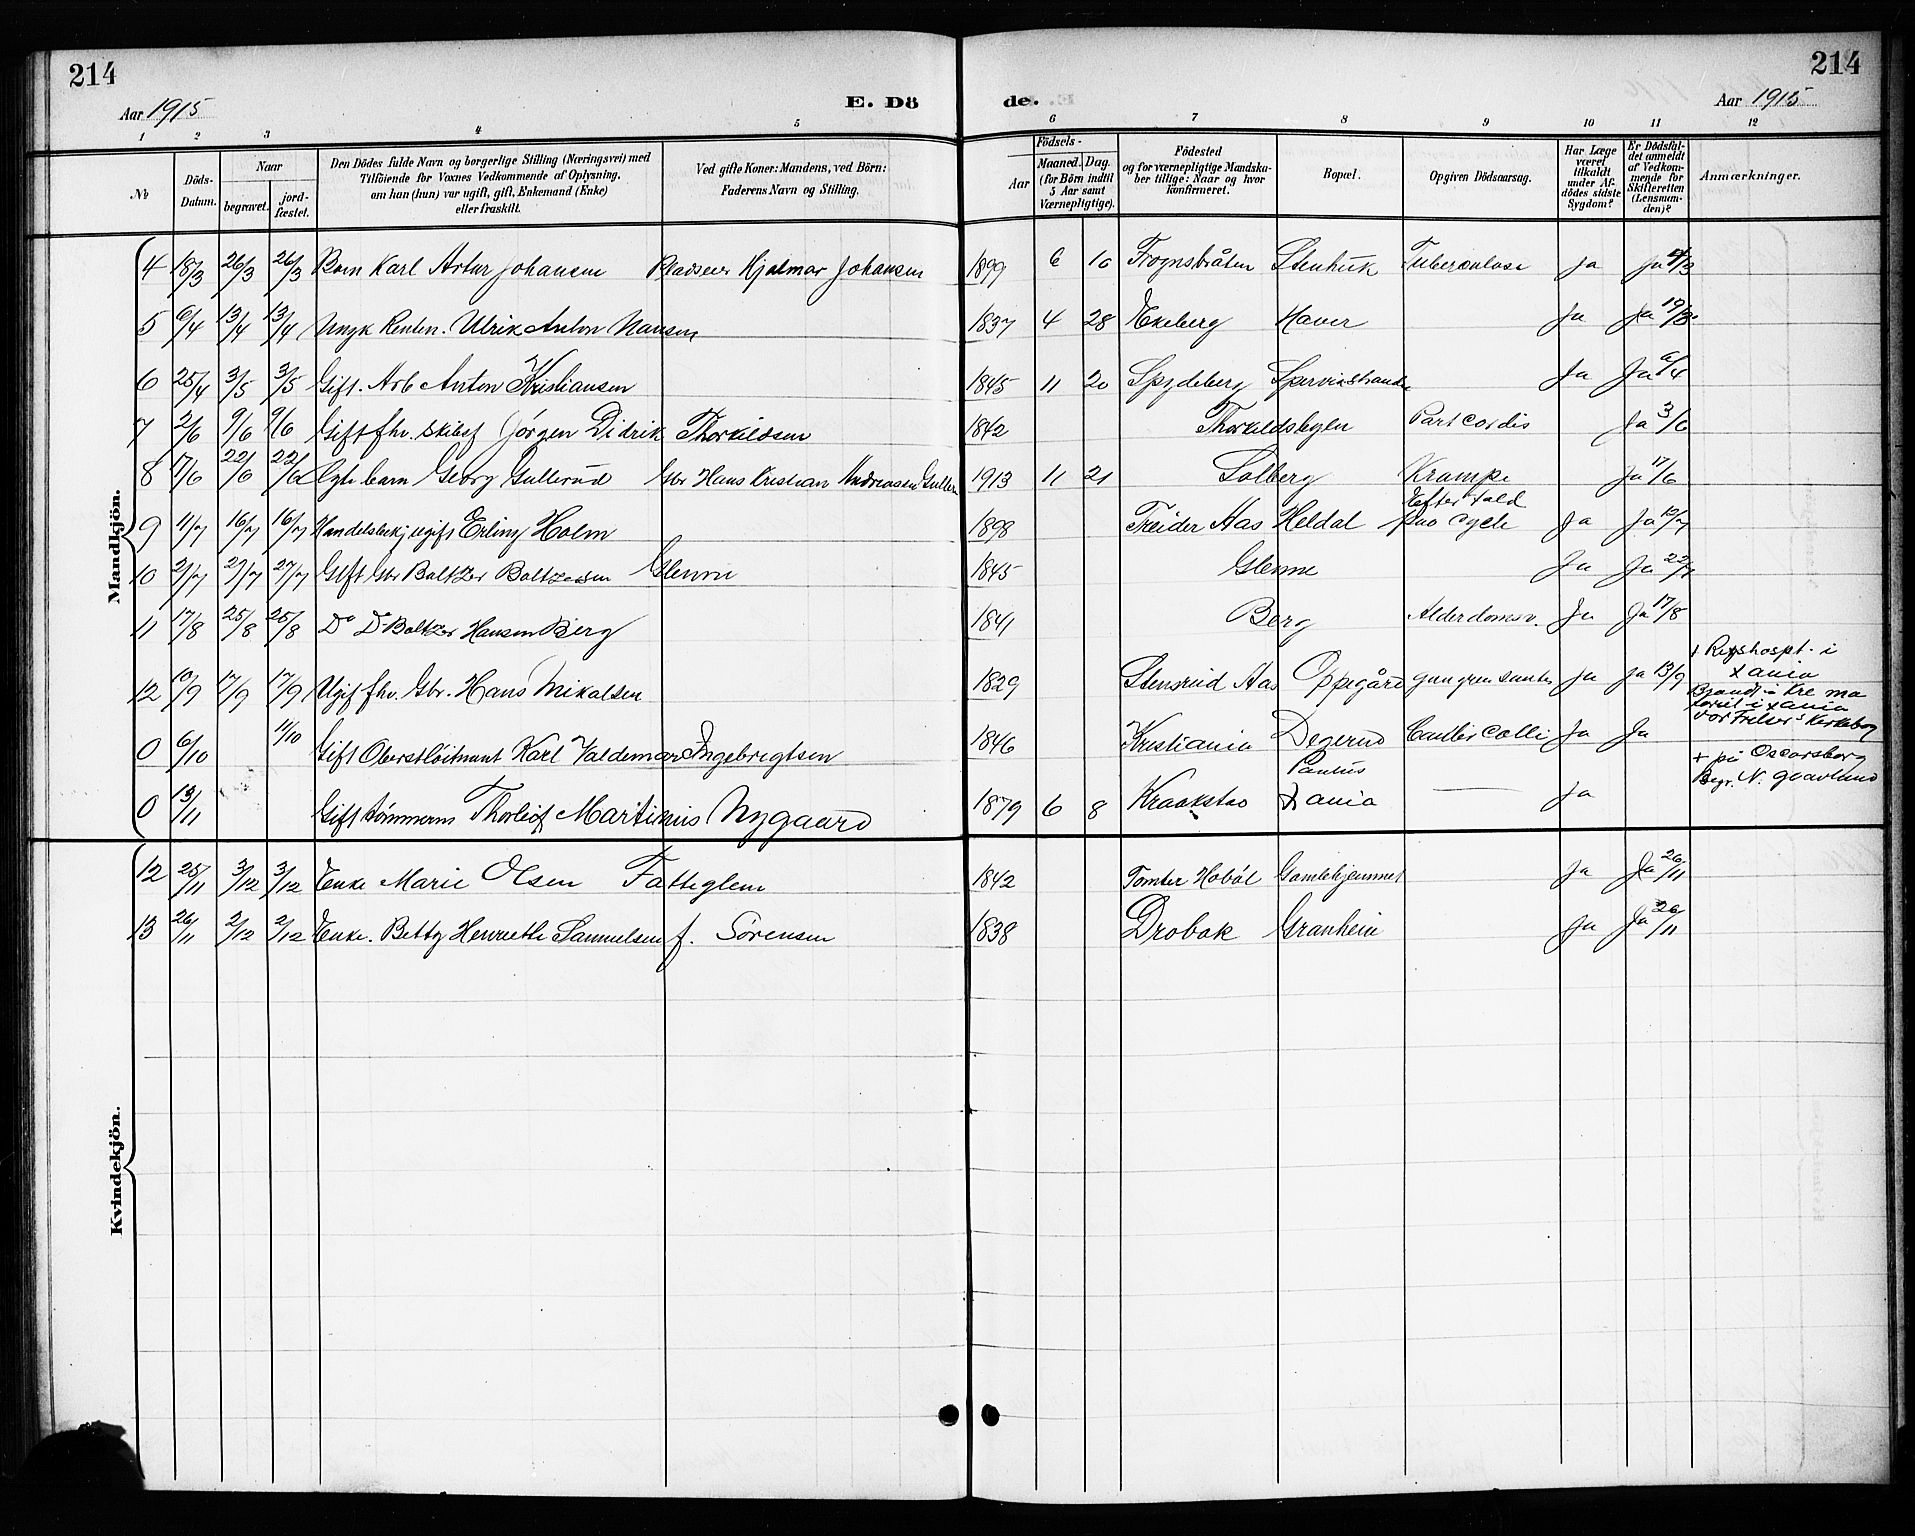 214
214
Aar 1915
E. Dö
de.
Aar 1915
1 2 3 4 5 6 7 8 9 10 11 12
No
Döds-Datum.
Naar
begravet.
jord-fæstet.
Den Dödes fulde Navn og borgerlige Stilling (Næringsvei) med
Tilföiende for Voxnes Vedkommende af Oplysning,
om han (hun) var ugift, gift, Enkemand (Enke)
eller fraskilt.
Ved gifte Koner: Mandens, ved Börn:
Faderens Navn og Stilling.
Födsels-
Aar
Maaned. Dag.
(for Börn indtil
5 Aar samt
Værnepligtige).
Födested
og for værnepligtige Mandska-
ber tillige: Naar og hvor
konfirmeret.
Bopæl.
Opgiven Dödsaarsag.
Har Læge
været
tilkaldt
under Af-
dödes sidste
Sygdom?
Er Dödsfal-
det anmeldt
af Vedkom-
mende for
Skifteretten
(Lensman-
den)?
Anmærkninger.
Mandkjön.
4 18/3 26/3 26/3 Barn Karl Artur Johansen Pladseier Hjalmar Johansen 1899 6 16 Frognsbråten Stenhuk Tuberculose Ja Ja
5 6/4 13/4 13/4 Ungk Renten. Ulrik Anton Hansen 1837 4 28 Ekeberg Haver Ja Ja
6 25/4 3/5 3/5 Gift. Arb Anton Kristiansen 1845 11 20 Spydeberg Ja Ja
7 2/6 9/6 9/6 Gift fhv. Skibsf Jörgen Didrik Thorkildsen 1842 Paret cordis Ja 3/6
8 17/6 22/6 22/6 Egte barn Georg Gullerud Gbr Hans Kristian Andreassen 1913 11 21 Solberg Krampe Ja 17/6
9 11/7 16/7 16/7 Handelsbetj ugift Erling Holm 1898 Treider Aas Heldal Efter fald
paa cycle Ja Ja
10 21/7 27/7 27/7 Gift Gbr Baltzer Baltzersen Glenne 1845 Glenne Ja Ja
11 17/8 25/8 25/8 Do Do Baltzer Hansen Berg 1841 Berg Alderdomsv. Ja Ja 17/8
12 10/9 17/9 17/9 Ugift fhv. Gbr. Hans Mikalsen 1829 Stensrud Aas Oppegård Ja Ja 13/9 + Rigshospt. i
Xania
0 6/10 11/10 Gift Oberstløitnant Karl Valdemar Ingebrigtsen 1846 Kristiania Degerud Ja Ja Brændt i Kre ma
toriet i Xania
Vor Frelser's Kirkebog
0 13/11 Gift tømmerm Thorleif Martinius Nygaard 1879 6 8 Kraakstad Xania — Ja + på Oscarsborg
Begr. N.
Kvindekjön.
12 25/11 3/12 3/12 Enke Marie Olsen Fattiglem 1842 Tomter Hobøl Gamlehjemmet Ja Ja 26/11
13 26/11 2/12 2/12 Enke. Betty Henriette Samuelsen f. Sörensen 1838 Drobak Granheim Ja Ja 26/11